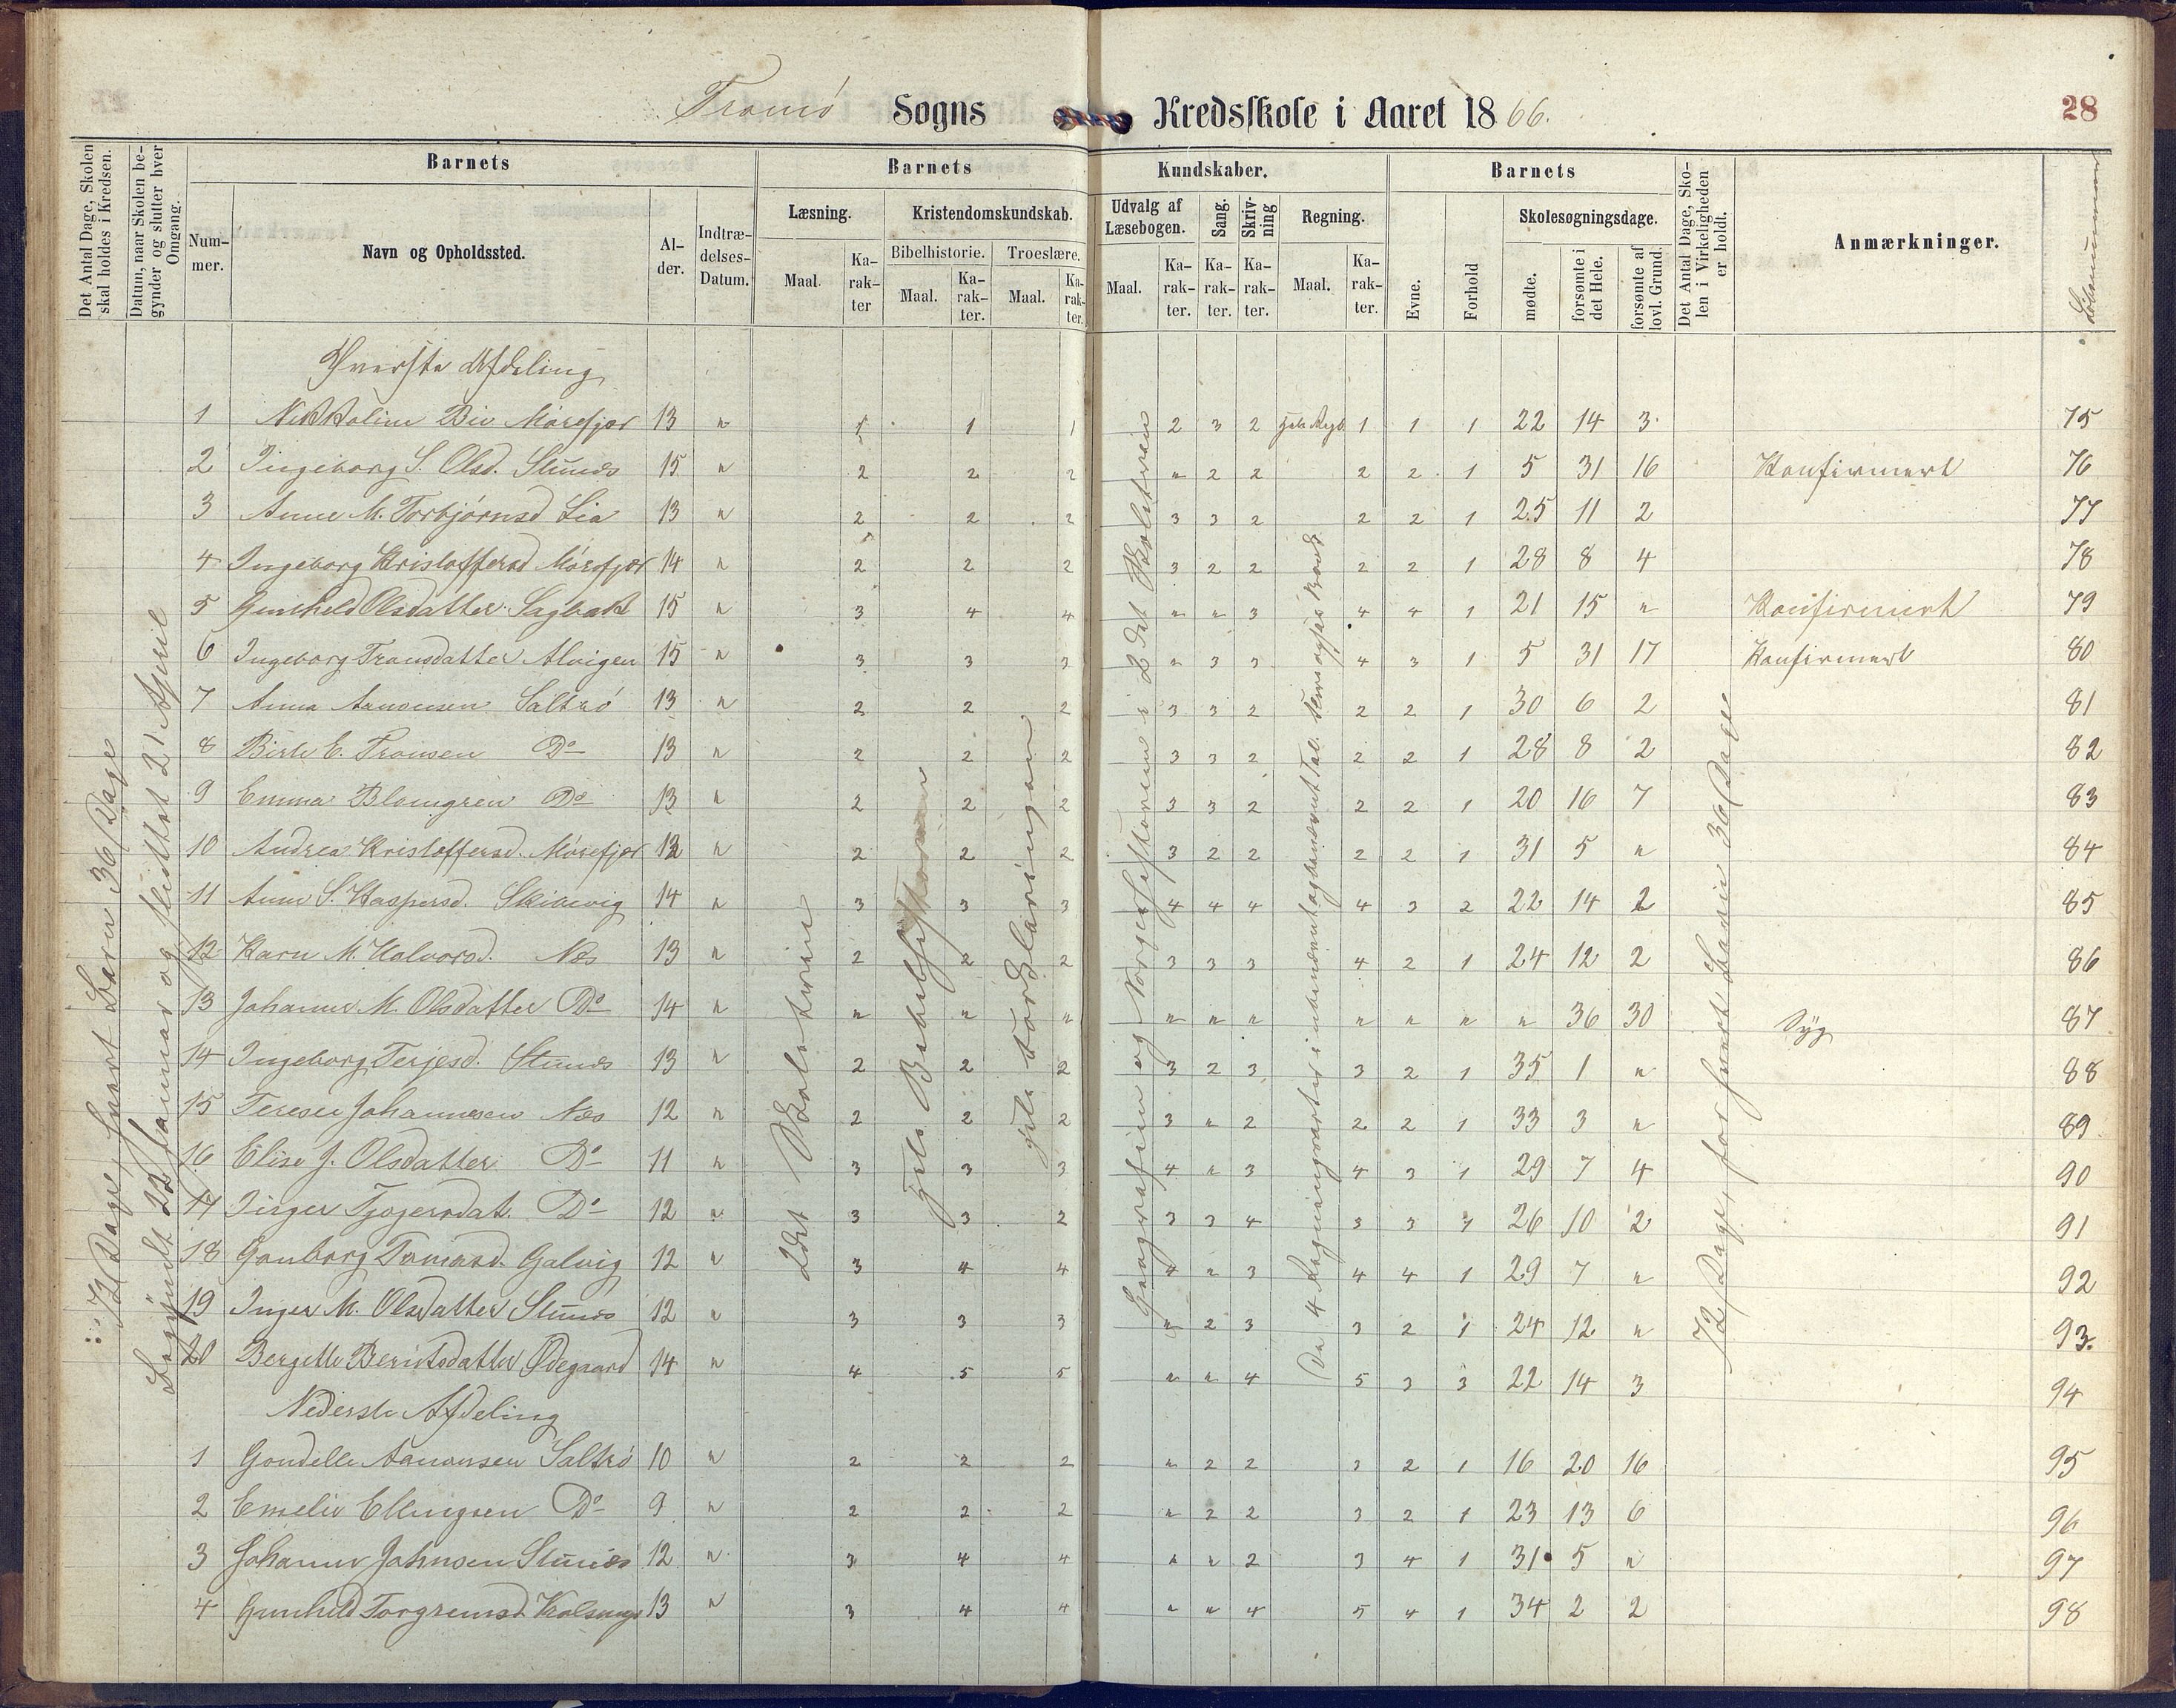 Tromø Sogns Kredsskole i Aaret 1866.
28
Det Antal Dage, Skolen skal holdes i Kredsen.
Datum, naar Skolen begynder og slutter hver Omgang.
Barnets
Nummer.
Navn og Opholdssted.
Alder.
Indtrædelses-Datum.
Barnets Kundskaber.
Læsning.
Maal.
Karakter
Kristendomskundskab.
Bibelhistorie.
Maal.
Karakter.
Troeslære.
Maal.
Karakter.
Udvalg af Læsebogen.
Maal.
Karakter.
Sang.
Karakter.
Skrivning
Karakter.
Regning.
Maal.
Karakter.
Barnets
Evne.
Forhold
Skolesøgningsdage.
mødte.
forsømte i det Hele.
forsømte af lovl. Grund.
Det Antal Dage, Skolen i Virkeligheden er holdt.
Anmærkninger.
Løbenummer
72 Dage, hvert Barn 36 Dage
Begyndt 22 Januar og sluttet 21 April
2det Skoletrin
hele Bibelhistorien
hele Forklaringen
Geografien og Norgeshistorien i 2det Skoletrin
De 4 Regningsarter i ubenævnt og benævnt Tal
72 Dage, for hvert Barn 36 Dage
Øverste Afdeling
1 Nikkoline Bie Mørefjær 13 " 1 1 1 2 3 2 hele Regb. 1 1 1 22 14 3 75
2 Ingeborg S. Olsd. Stuenes 15 " 2 2 2 " 2 2 2 2 1 5 31 16 Konfirmert 76
3 Anne M. Torbjørnsd Lia 13 " 2 2 2 3 3 2 2 2 1 25 11 2 77
4 Ingeborg Kristoffersd Mørefjær 14 " 2 2 2 3 2 2 2 2 1 28 8 4 78
5 Gunhild Olsdatter Sagbak 15 " 3 4 4 " " 3 4 4 1 21 15 " Konfirmert 79
6 Ingeborg Tronsdatter Alvigen 15 " 3 3 3 " 3 3 4 3 1 5 31 17 Konfirmert 80
7 Anna Aanonsen Saltrø 13 " 2 2 2 3 3 2 2 2 1 30 6 2 81
8 Birte E. Tronsen Do 13 " 2 2 2 3 3 2 2 2 1 28 8 2 82
9 Emma Blomgren Do 13 " 2 2 2 3 3 2 2 2 1 20 16 7 83
10 Andrea Kristoffersd. Mørefjær 13 " 2 2 2 3 2 2 2 2 1 31 5 " 84
11 Anne S. Kaspersd. Skibevig 14 " 3 3 3 4 4 4 4 3 2 22 14 2 85
12 Karn M. Halvorsd. Næs 13 " 2 2 2 3 3 3 4 2 1 24 12 2 86
13 Johanne M. Olsdatter Do 14 " " " " " " " " " " " 36 30 Syg 87
14 Ingeborg Terjesd. Stuenes 13 " 2 2 2 3 2 3 3 2 1 35 1 " 88
15 Terese Johannesen Næs 12 " 2 2 2 3 " 2 2 2 1 33 3 " 89
16 Elise J. Olsdatter Do 11 " 3 3 3 4 " 3 4 3 1 29 7 4 90
17 Inger Tjøgersdat. Do 12 " 3 3 2 3 3 4 3 3 1 26 10 2 91
18 Gonborg Tomasd. Galvig 12 " 3 4 4 4 " 3 4 4 1 29 7 " 92
19 Inger M. Olsdatter Stuenes 12 " 3 3 3 " 2 3 3 2 1 24 12 " 93.
20 Bergitte Berntsdatter Ødegaard 14 " 4 5 5 " " 4 5 3 3 22 14 3 94
Nederste Afdeling
1 Gondelle Aanonsen Saltrø 10 " 2 2 2 " 2 2 3 2 1 16 20 16 95
2 Emelie Ellingsen Do 9 " 2 2 2 " 2 2 3 2 1 23 13 6 96
3 Johanne Johnsen Stuenes 12 " 3 4 4 " " 2 3 4 1 31 5 " 97
4 Gunhild Torgremsd. 13 " 3 4 4 " " 4 5 4 1 34 2 2 98